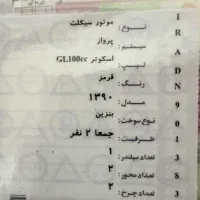 نوع: موتور سیکلت
سیستم: پرواز
تیپ: اسکوتر GL100cc
رنگ: قرمز
مدل: ۱۳۹۰
نوع سوخت: بنزین
ظرفیت: جمعا ۲ نفر
تعداد سیلندر: ۱
تعداد محور: ۲
تعداد چرخ: ۲